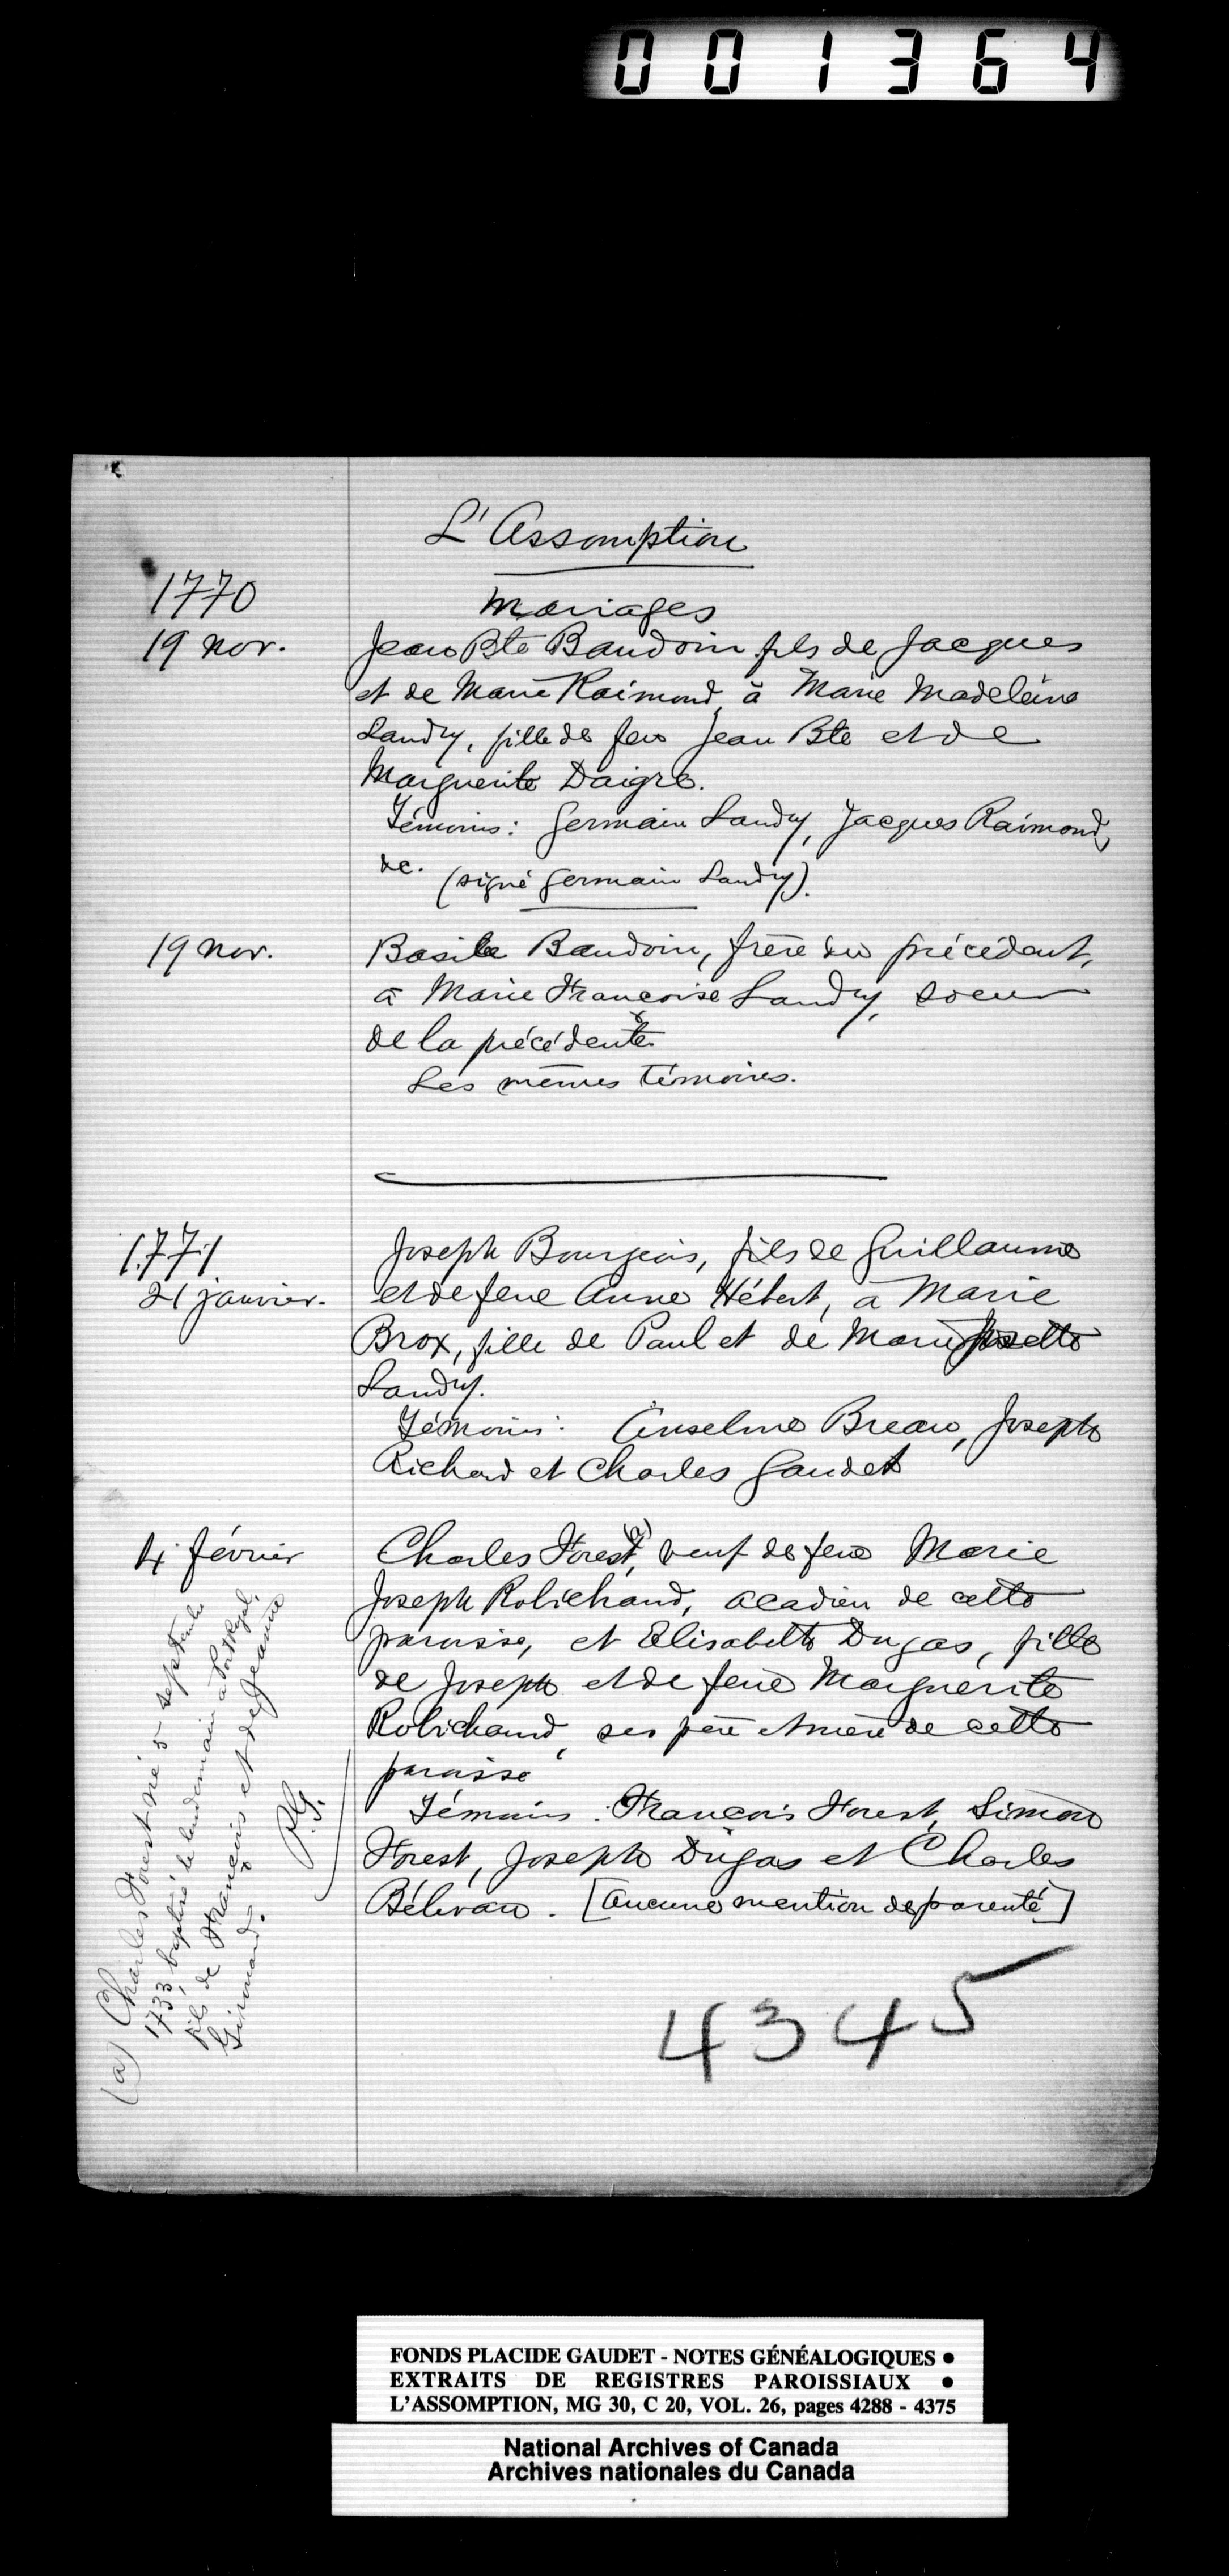 001364
L'Assomption
1770
Mariages
19 nov.
Jean Bte Baudoin fils de Jacques
et de Marie Raimond, à Marie Madeleine
Landry, fille de feu Jean Bte et de
Marguerite Daigre.
Témoins: Germain Landry, Jacques Raimond,
&c. (signé Germain Landry).
19 nov.
Basile Baudoin, frère du précédent,
à Marie Françoise Landry, soeur
de la précédente.
Les mêmes témoins.
1771
21 janvier.
Joseph Bourgeois, fils de Guillaume
et de feue Anne Hébert, à Marie
Brox, fille de Paul et de Marie Josette
Landry.
Témoins: Anselme Breau, Joseph
Richard et Charles Gaudet
4 février
Charles Forest, (a) veuf de feue Marie
Joseph Robichaud, acadien de cette
paroisse, et Elisabeth Dugas, fille
de Joseph et de feue Marguerite
Robichaud, ses père et mère de cette
paroisse
Témoins: François Forest, Simon
Forest, Joseph Dugas et Charles
Béliveau. [aucune mention de parenté]
(a) Charles Forest né 5 septembre
1733, baptisé le lendemain à Port Royal,
fils de François et de Jeanne
Girouard.
P.G.
4345
FONDS PLACIDE GAUDET - NOTES GÉNÉALOGIQUES •
EXTRAITS DE REGISTRES PAROISSIAUX •
L'ASSOMPTION, MG 30, C 20, VOL. 26, pages 4288 - 4375
National Archives of Canada
Archives nationales du Canada